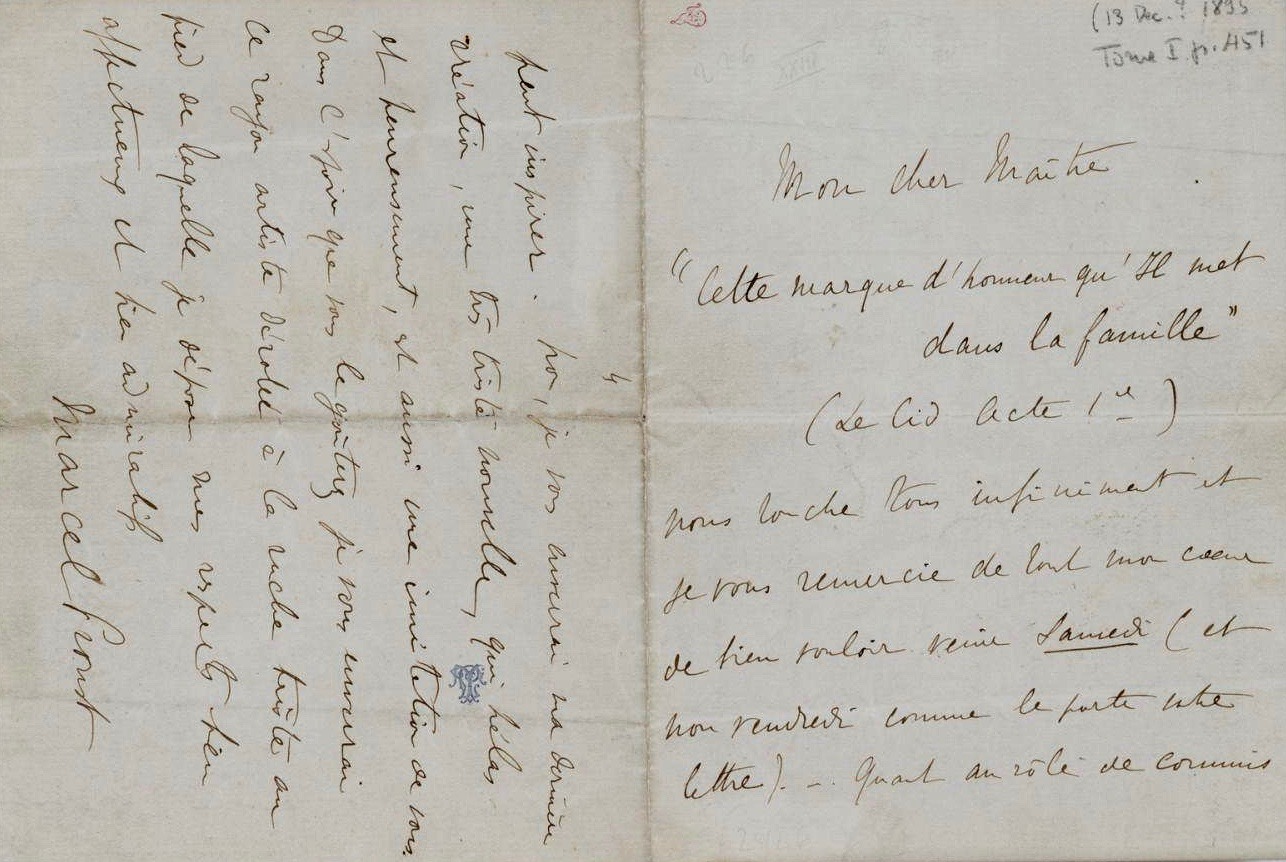 (13 Dec.? 1895
Tome I. p. 451
Mon cher Maître
"Cette marque d'honneur qu'Il met
dans la famille"
(Le Cid Acte 1er)
nous touche tous infiniment et
je vous remercie de tout mon cœur
de bien vouloir venir Samedi (et
non vendredi comme le porte votre
lettre). — Quant au rôle de commis
4
peut inspirer. je vous enverrai ma dernière
création, une très triste nouvelle, qui hélas
et heureusement, est aussi une imitation de vous.
Dans l'espoir que vous le goûtiez je vous enverrai
ce rayon artiste dérobé à la ruche triste au
pied de laquelle je dépose mes respects bien
affectueux et bien admiratifs
Marcel Proust